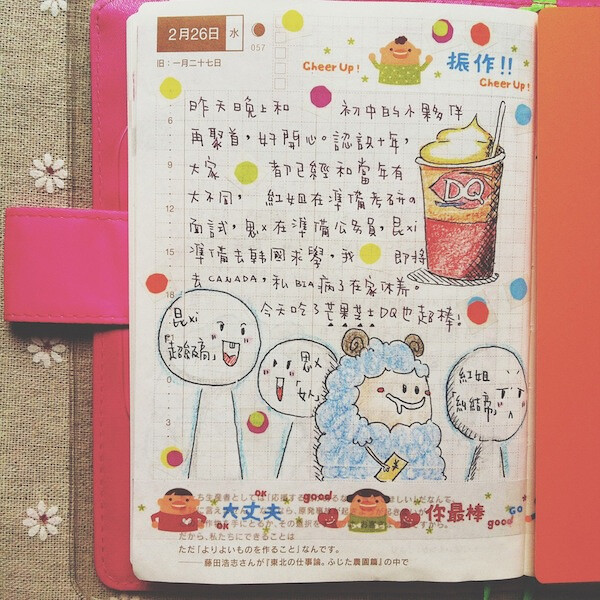 2月26日 水
旧:一月二十七日
057
Cheer Up!
振作!!
Cheer Up!
昨天晚上和 初中的小夥伴
再聚首,好開心。認設十年,
大家 都已經和當年有
大不同,紅姐在準備考研の
面試,思x在準備公务員,昆xi
準備去韩國求學,我 即將
去CANADA,私BIA病了在家休养。
今天吃了芒果芝士DQ也超棒!
DQ
6
9
12
15
18
3
昆xi
「超級高」
思x
「女人」
紅姐
「糾結帝」
OK
大丈夫
OK
good
good
你最棒
good
GO
ただ「よりよいものを作ること」なんです。
藤田浩志さんが『東北の仕事論。ふじた農園篇』の中で